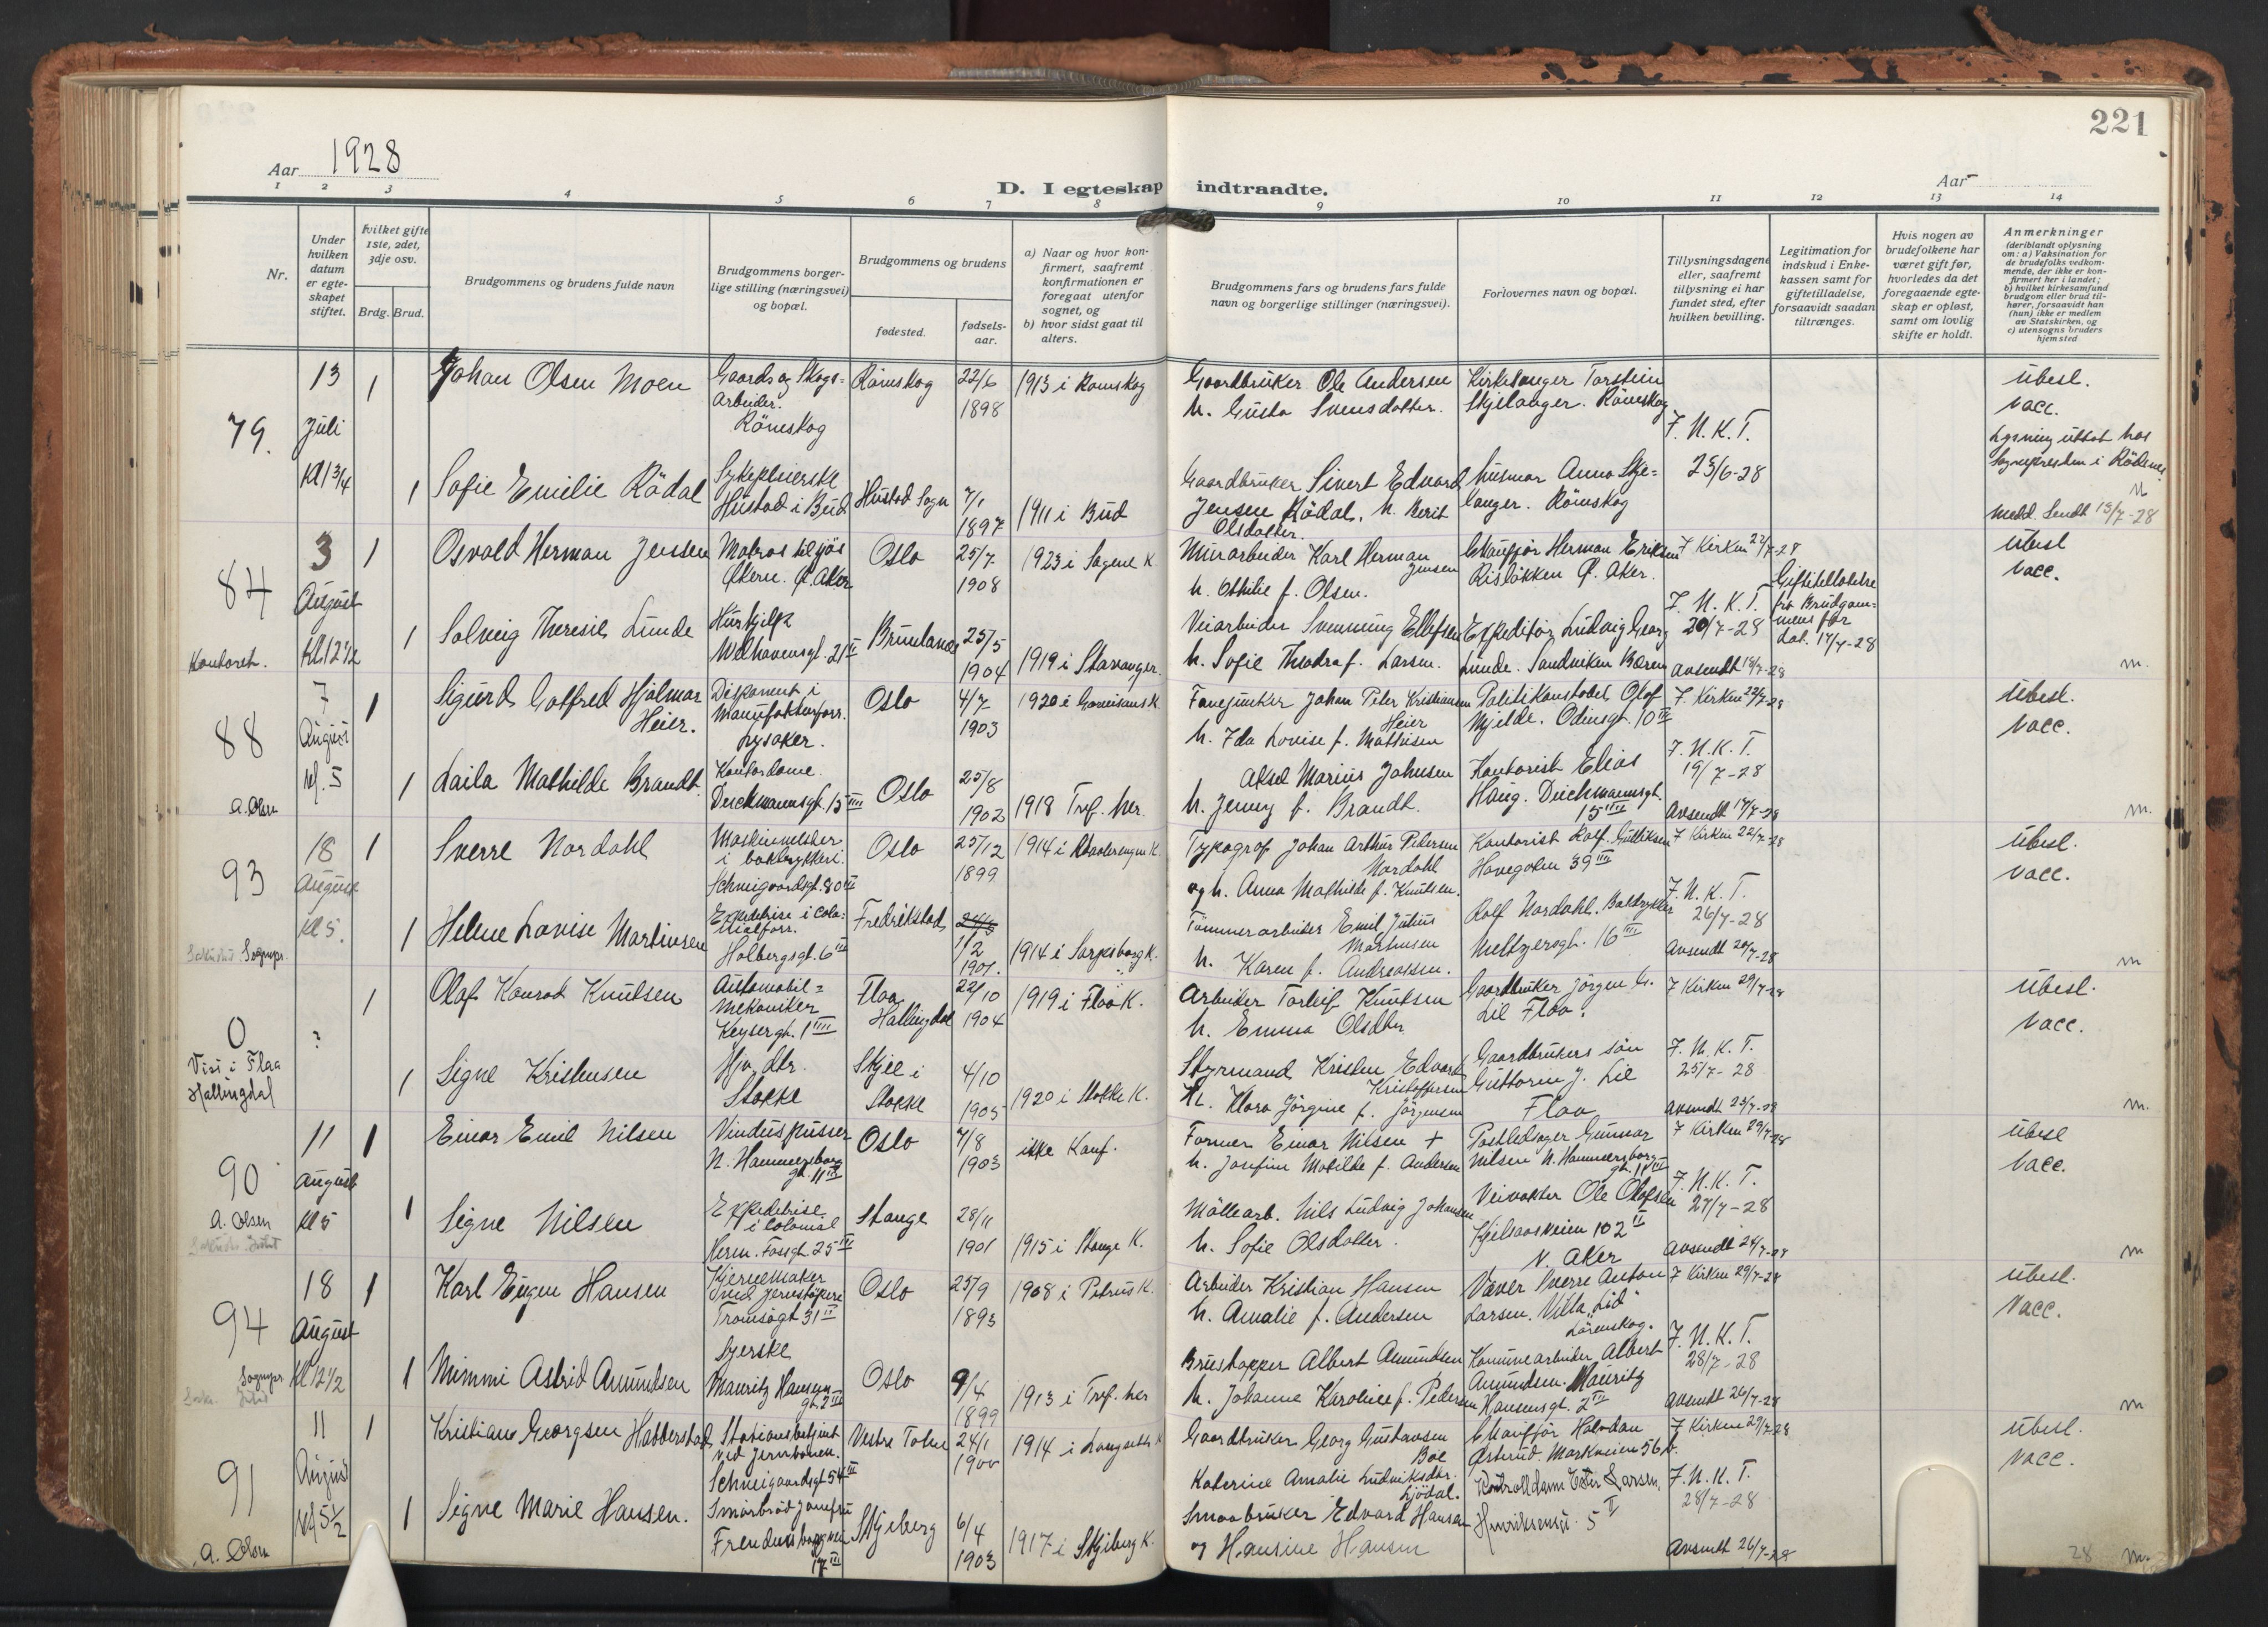 221
Aar 1928
Aar
D. I egteskap indtraadte.
1 2 3 4 5 6 7 8 9 10 11 12 13 14
Nr.
Under hvilken datum er egteskapet stiftet.
Hvilket gifte 1ste, 2det, 3dje osv.
Brdg. Brud.
Brudgommens og brudens fulde navn
Brudgommens borgerlige stilling (næringsvei) og bopæl.
Brudgommens og brudens
fødested.
fødsels-aar.
a) Naar og hvor konfirmert, saafremt konfirmationen er foregaat utenfor sognet, og
b) hvor sidst gaat til alters.
Brudgommens fars og brudens fars fulde navn og borgerlige stillinger (næringsvei).
Forlovernes navn og bopæl.
Tillysningsdagene eller, saafremt tillysning ei har fundet sted, efter hvilken bevilling.
Legitimation for indskud i Enkekassen samt for giftetilladelse, forsaavidt saadan tiltrænges.
Hvis nogen av brudefolkene har været gift før, hvorledes da det foregaaende egteskap er opløst, samt om lovlig skifte er holdt.
Anmerkninger
(deriblandt oplysning om: a) Vaksination for de brudefolks vedkommende, der ikke er konfirmert her i landet; b) hvilket kirkesamfund brudgom eller brud tilhører, forsaavidt han (hun) ikke er medlem av Statskirken, og c) utensogns bruders hjemsted
79. 13 Juli Kl 1 3/4
1 Johan Olsen Moen
Gaards og Skogs=Arbeider. Römskog
Römskog 22/6 1898
1913 i Römskog
Gaardbruker Ole Andersen
h. Gusta Svensdatter.
Kirkesanger Torstein Skjelanger. Römskog
F. N. K. T. 23/6-28
ubesl. vacc.
Lysning uttat hos Sognepresten i Rödenes
Medd. sendt 13/7-28
1 Sofie Emilie Rödal
Sykepleierske Hustad i Bud
Hustad Sogn 7/1 1897
1911 i Bud
Gaardbruker Sivert Edvard Jensen Rödal, h. Berit Olsdatter.
husmor Anna Skje=langer. Römskog
84 Kontoret. 3 August Kl 12 1/2
1 Osvald Herman Jensen
Matros tilsjös Økern. Ø. Aker
Oslo 25/7 1908
1923 i Sagene K.
Murarbeider Karl Herman Jensen
h. Othilie f. Olsen.
Chauffør Herman Eriksen Risløkken Ø. Aker.
F Kirken 22/7-28
F. N. K. T. 20/7-28
avsendt 18/7-28
Giftetillatelse fra Brudgommens far dat. 17/7-28
ubesl vacc.
m.
1 Solveig Theresie Lunde
Hushjelp Welhavensgt. 21 II
Brunlanes 25/5 1904
1919 i Stavanger.
Veiarbeider Svenning Ellefsen
h. Sofie Theodra f. Larsen.
Expeditör Ludvig Georg Lunde. Sandviken Bærum
88 A. Olsen 7 August Kl. 5
1 Sigurd Gotfred Hjalmar Heier.
Disponent i Manufakturforr. Lysaker.
Oslo 4/7 1903
1920 i Garnisons K
Fanejunker Johan Peter Kristiansen Heier
h. Ida Lovise f. Mathisen
Politikonstabel Olof Mjelde. Odinsgt. 10 III
F. Kirken 22/7-28
F. N. K. T. 19/7-28
Avsendt 17/7-28
ubesl. vacc.
m.
1 Laila Mathilde Brandt
Kontordame. Deichmannsgt. 15 IIII
Oslo 25/8 1902
1918 Tref. her.
Aksel Marius Johnsen
h. Jenny f. Brandt.
Kontorist Elias Haug. Deichmannsgt. 15 IIII
93 18 August Kl 5.
1 Sverre Nordahl
Maskinmester i boktrykkeri. Schweigaardsgt. 80 III
Oslo 25/12 1899
1914 i Vaalerengen K.
Typograf Johan Arthur Petersen Nordahl
og h. Anna Mathilde f. Knutsen.
Kontorist Rolf Gulliksen Hovegaten 39 IIII
F Kirken 22/7-28
F. N. K. T. 26/7-28
Avsendt 20/7-28
ubesl. vacc.
m
1 Helene Lovise Martinsen
Expeditrise i colo=nialforr. Holbergsgt. 6 III
Fredrikstad 1/2 1901.
1914 i Sarpsborg K.
Tömmerarbeider Emil Julius Martinsen
h. Karen f. Andreassen.
Rolf Nordahl. Boktrykker Meltzersgt. 16 III
0 Viet i Flaa Hallingdal ?
1 Olaf Konrad Knutsen
Automobil=mekaniker Keysersgt. 1 IIII
Flaa Hallingdal 22/10 1904
1919 i Flaa K.
Arbeider Torleif Knutsen
h. Emma Olsdtr
Gaardbruker Jörgen G. Lie Flaa.
F Kirken 29/7-28
F. N. K. T. 25/7-28
avsendt 23/7-28
ubesl. vacc.
m.
1 Signe Kristensen
Hjv. dtr. Stokke
Skjee i Stokke 4/10 1905
1920 i Stokke K.
Styrmand Kristen Edvart Kristoffersen
h. Klara Jörgine f. Jörgensen
Gaardbrukers sön Guttorm J. Lie Flaa
90 A. Olsen 11 August Kl 5
1 Einar Emil Nilsen
Vinduspusser N. Hammersborg gt. 11 II
Oslo 7/8 1903
ikke Konf.
Former Einar Nilsen +
h. Josefine Matilde f. Andersen
Postledsager Gunnar Nilsen N. Hammersborg gt. 11 III
F Kirken 29/7-28
F. N. K. T. 27/7-28
Avsendt 24/7-28
ubesl vacc.
m
1 Signe Nilsen
Expeditrise i Colonial Herm. Fossgt. 25 III
Stange 28/11 1901
1915 i Stange K.
Möllearb. Nils Ludvig Johansen
h. Sofie Olsdatter.
Veivokter Ole Olofsen Kjelsaasveien 102 II V. Aker
94 Sognepr. 18 August Kl 12 1/2
1 Karl Eugen Hansen
Kjernemaker ved jernstöperi Tromsögt 31 II
Oslo 25/9 1893
1908 i Petrus K.
Arbeider Kristian Hansen
h. Amalie f. Andersen
Væver Sverre Anton Larsen. Villa "Lid" Lörenskog.
F Kirken 29/7-28
F. N. K. T. 28/7-28
avsendt 26/7-28
ubesl. Vacc.
m
1 Mimmi Astrid Amundsen
Syerske Mauritz Hansens gt. 2 III
Oslo 9/4 1899
1913 i Tref. her
Brustapper Albert Amundsen
h. Johanne Karoline f. Pedersen
Kommunearbeider Albert Amundsen. Mauritz Hansensgt. 2 III
91 A. Olsen 11 August Kl 5 1/2
1 Kristian Georgsen Habberstad
Stationsbetjent ved Jernbanen. Schweigaardsgt 54 III
Vestre Toten 24/1 1900
1914 i Langseth K
Gaardbruker Georg Gustavsen Boe
Katerine Amalie Ludviksdtr. Sjödal.
Chauffør Halvdan Østerud. Markveien 56 b.
F Kirken 29/7-28
F. N. K. T. 28/7-28
Avsendt 26/7-28
ubesl. vacc.
28 m.
1 Signe Marie Hansen.
Smörbröd jomfru Fredensborgveien 17 III
Skjeberg 6/4 1903
1917 i Skjeberg K.
Smaabruker Edvard Hansen
og Hansine Hansen
Kontrolldame Ester Larsen. Henriksensgt. 5 II